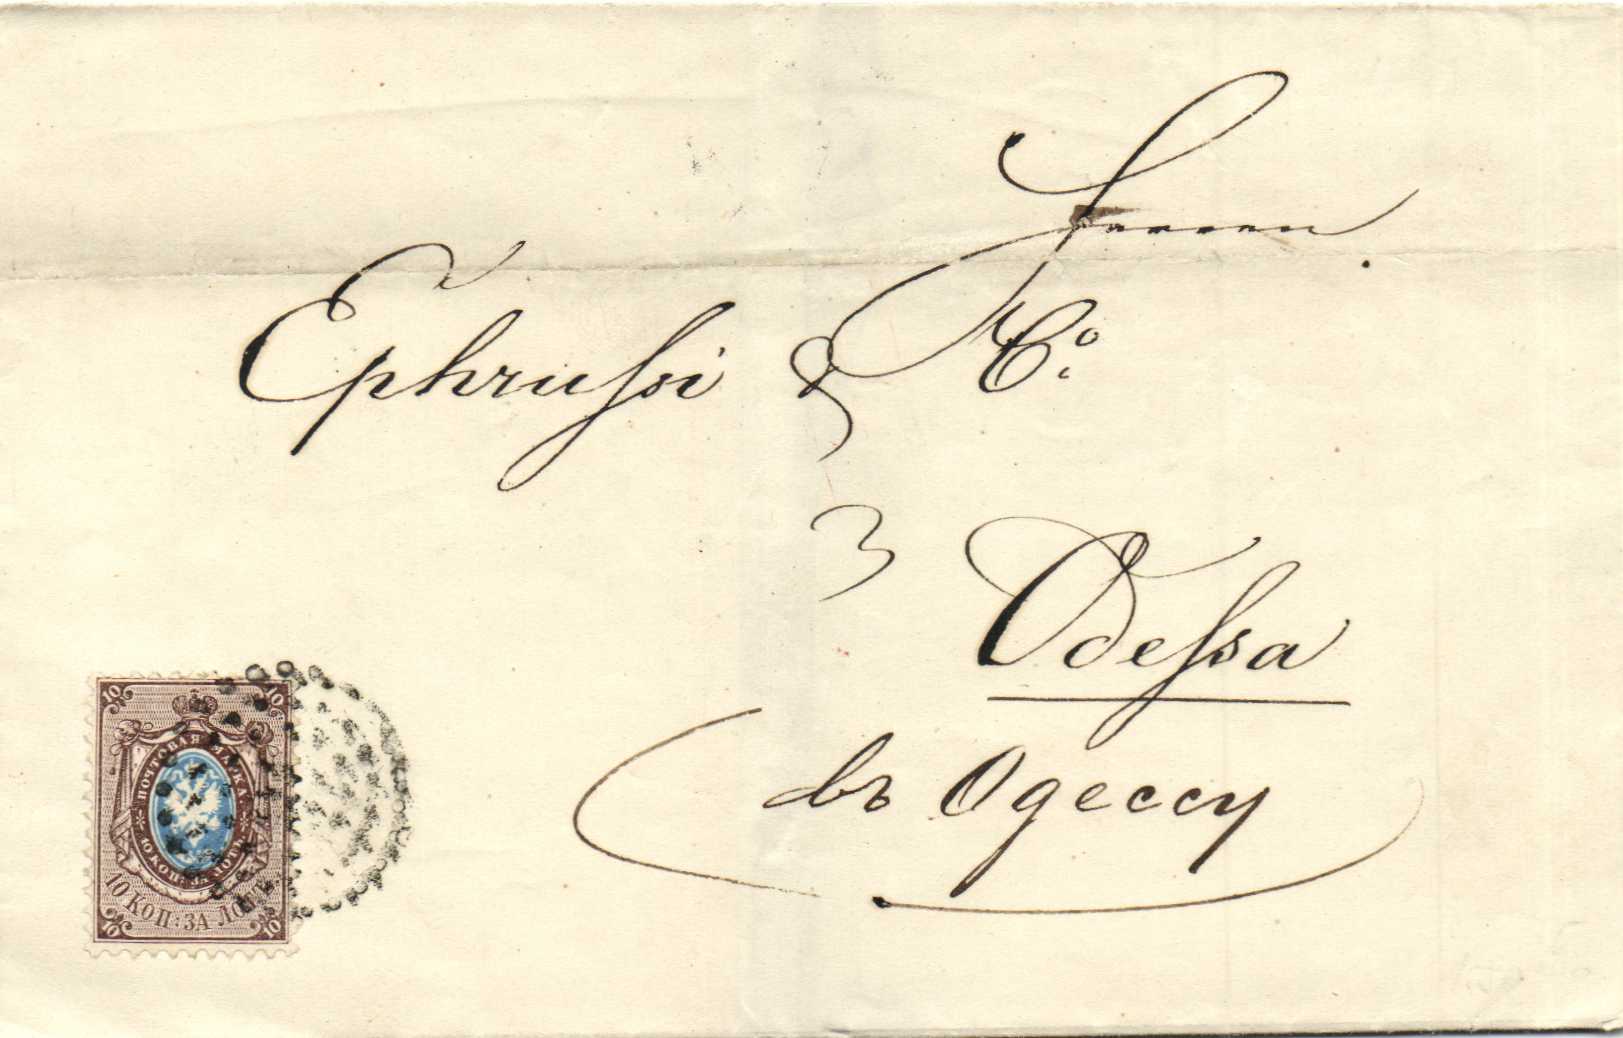 Herren
Ephrussi & Co.
Odessa
въ Одессу
10 10
ПОЧТОВАЯ МАРКА
10 КОП: ЗА ЛОТЪ
10 КОП: ЗА ЛОТЪ
10 10